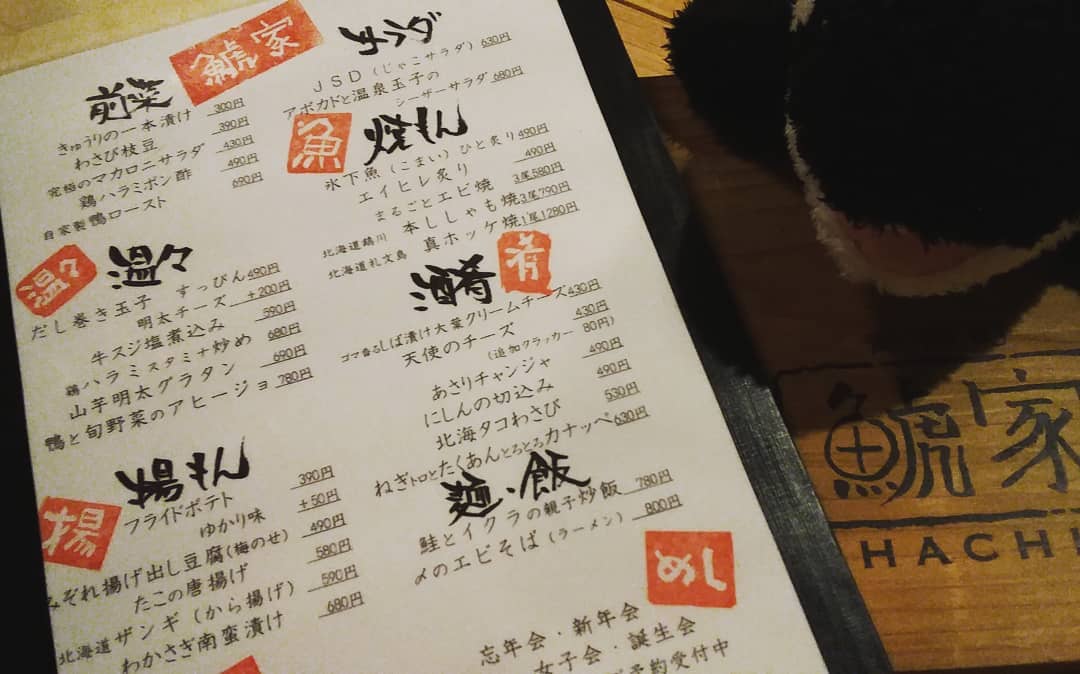 鯱家
前菜
きゅうりの一本漬け 300円
わさび枝豆 390円
究極のマカロニサラダ 430円
鶏ハラミポン酢 490円
自家製鴨ロースト 690円
温々
温々
だし巻き玉子 すっぴん 490円
明太チーズ +200円
牛スジ塩煮込み 590円
鶏ハラミスタミナ炒め 680円
山芋明太グラタン 690円
鴨と旬野菜のアヒージョ 780円
揚
揚もん
フライドポテト 390円
ゆかり味 +50円
みぞれ揚げ出し豆腐(梅のせ) 490円
たこの唐揚げ 580円
北海道ザンギ(から揚げ) 590円
わかさぎ南蛮漬け 680円
サラダ
JSD(じゃこサラダ) 630円
アボカドと温泉玉子の
シーザーサラダ 680円
魚
焼もん
氷下魚(こまい)ひと炙り 490円
エイヒレ炙り 490円
まるごとエビ焼 3尾580円
北海道鵡川 本ししゃも焼 3尾790円
北海道礼文島 真ホッケ焼 1尾1280円
酒肴
肴
ゴマ香るしば漬け大葉クリームチーズ 430円
天使のチーズ 430円
(追加クラッカー 80円)
あさりチャンジャ 490円
にしんの切込み 490円
北海タコわさび 530円
ねぎトロとたくあんとろとろカナッペ 630円
麺・飯
鮭とイクラの親子炒飯 780円
〆のエビそば(ラーメン) 800円
めし
忘年会・新年会
女子会・誕生会
予約受付中
鯱家
HACHI